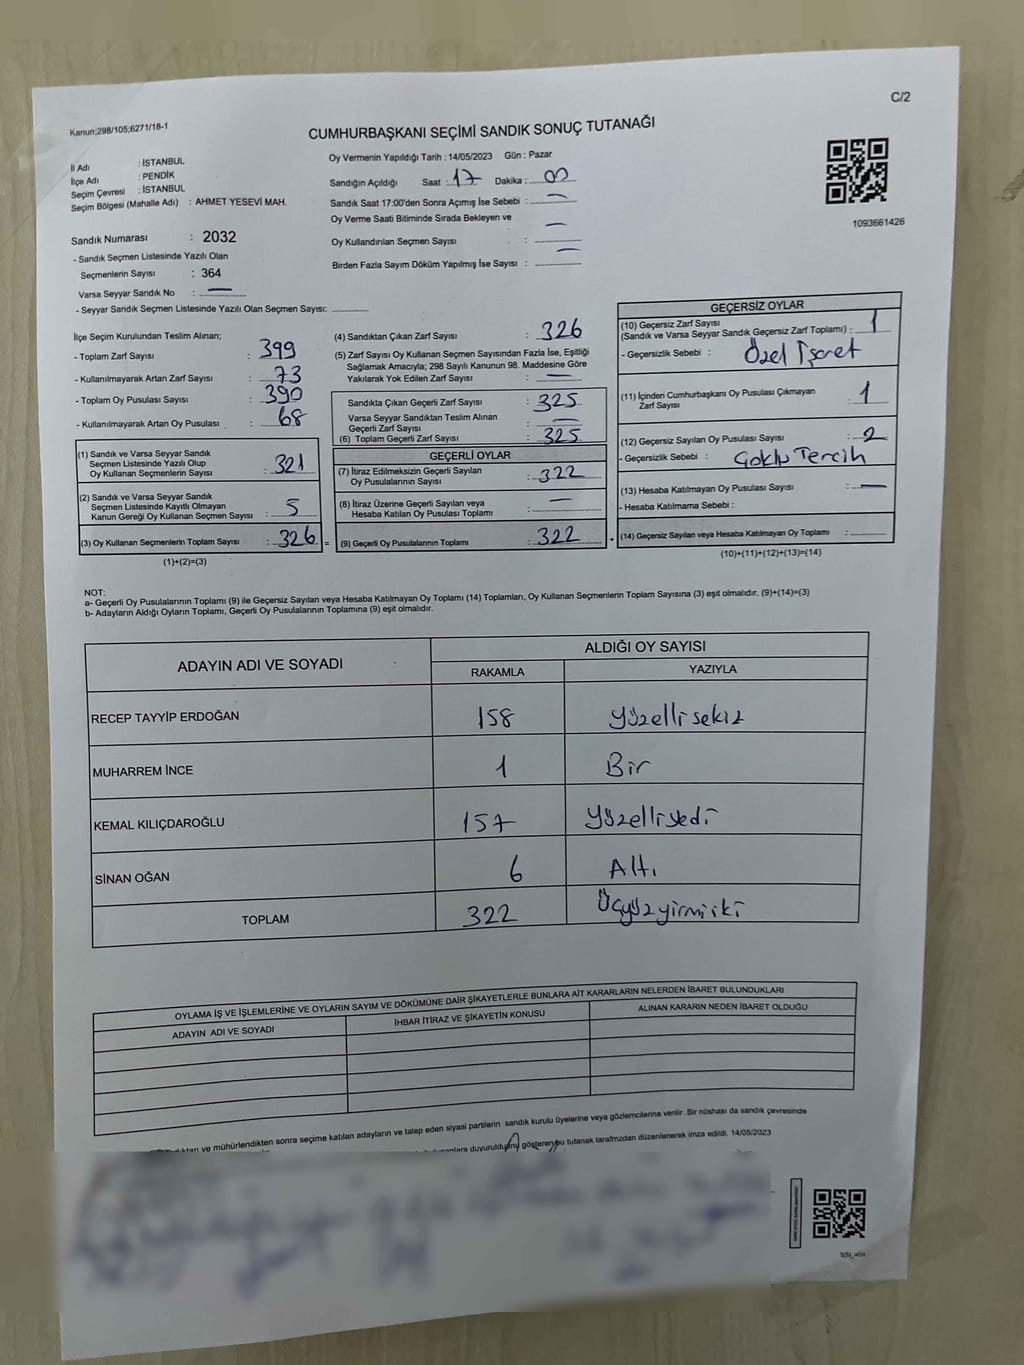 C/2
Kanun;298/105;6271/18-1
CUMHURBAŞKANI SEÇİMİ SANDIK SONUÇ TUTANAĞI
İl Adı : İSTANBUL
İlçe Adı : PENDİK
Seçim Çevresi : İSTANBUL
Seçim Bölgesi (Mahalle Adı) : AHMET YESEVİ MAH.
Sandık Numarası : 2032
- Sandık Seçmen Listesinde Yazılı Olan
Seçmenlerin Sayısı : 364
Varsa Seyyar Sandık No : —
- Seyyar Sandık Seçmen Listesinde Yazılı Olan Seçmen Sayısı:
Oy Vermenin Yapıldığı Tarih : 14/05/2023 Gün : Pazar
Sandığın Açıldığı Saat : 17 Dakika : 00
Sandık Saat 17:00'den Sonra Açımış İse Sebebi : —
Oy Verme Saati Bitiminde Sırada Bekleyen ve —
Oy Kullandırılan Seçmen Sayısı :
Birden Fazla Sayım Döküm Yapılmış İse Sayısı : —
1093661426
İlçe Seçim Kurulundan Teslim Alınan;
- Toplam Zarf Sayısı : 399
- Kullanılmayarak Artan Zarf Sayısı : 73
- Toplam Oy Pusulası Sayısı : 390
- Kullanılmayarak Artan Oy Pusulası : 68
(1) Sandık ve Varsa Seyyar Sandık
Seçmen Listesinde Yazılı Olup
Oy Kullanan Seçmenlerin Sayısı : 321
(2) Sandık ve Varsa Seyyar Sandık
Seçmen Listesinde Kayıtlı Olmayan
Kanun Gereği Oy Kullanan Seçmen Sayısı : 5
(3) Oy Kullanan Seçmenlerin Toplam Sayısı : 326 =
(1)+(2)=(3)
(4) Sandıktan Çıkan Zarf Sayısı : 326
(5) Zarf Sayısı Oy Kullanan Seçmen Sayısından Fazla İse, Eşitliği
Sağlamak Amacıyla; 298 Sayılı Kanunun 98. Maddesine Göre
Yakılarak Yok Edilen Zarf Sayısı : —
Sandıkta Çıkan Geçerli Zarf Sayısı : 325
Varsa Seyyar Sandıktan Teslim Alınan
Geçerli Zarf Sayısı : —
(6) Toplam Geçerli Zarf Sayısı : 325
GEÇERLİ OYLAR
(7) İtiraz Edilmeksizin Geçerli Sayılan
Oy Pusulalarının Sayısı : 322
(8) İtiraz Üzerine Geçerli Sayılan veya
Hesaba Katılan Oy Pusulası Toplamı : —
(9) Geçerli Oy Pusulalarının Toplamı : 322 +
GEÇERSİZ OYLAR
(10) Geçersiz Zarf Sayısı
(Sandık ve Varsa Seyyar Sandık Geçersiz Zarf Toplamı) : 1
- Geçersizlik Sebebi : Özel İşaret
(11) İçinden Cumhurbaşkanı Oy Pusulası Çıkmayan
Zarf Sayısı : 1
(12) Geçersiz Sayılan Oy Pusulası Sayısı : 2
- Geçersizlik Sebebi : Çoklu Tercih
(13) Hesaba Katılmayan Oy Pusulası Sayısı : —
- Hesaba Katılmama Sebebi :
(14) Geçersiz Sayılan veya Hesaba Katılmayan Oy Toplamı :
(10)+(11)+(12)+(13)=(14)
NOT:
a- Geçerli Oy Pusulalarının Toplamı (9) ile Geçersiz Sayılan veya Hesaba Katılmayan Oy Toplamı (14) Toplamları, Oy Kullanan Seçmenlerin Toplam Sayısına (3) eşit olmalıdır. (9)+(14)=(3)
b- Adayların Aldığı Oyların Toplamı, Geçerli Oy Pusulalarının Toplamına (9) eşit olmalıdır.
ADAYIN ADI VE SOYADI
ALDIĞI OY SAYISI
RAKAMLA YAZIYLA
RECEP TAYYİP ERDOĞAN 158 Yüzellisekiz
MUHARREM İNCE 1 Bir
KEMAL KILIÇDAROĞLU 157 Yüzelliyedi
SİNAN OĞAN 6 Altı
TOPLAM 322 Üçyüzyirmiiki
OYLAMA İŞ VE İŞLEMLERİNE VE OYLARIN SAYIM VE DÖKÜMÜNE DAİR ŞİKAYETLERLE BUNLARA AİT KARARLARIN NELERDEN İBARET BULUNDUKLARI
ADAYIN ADI VE SOYADI İHBAR İTİRAZ VE ŞİKAYETİN KONUSU ALINAN KARARIN NEDEN İBARET OLDUĞU
ve mühürlendikten sonra seçime katılan adayların ve talep eden siyasi partilerin sandık kurulu üyelerine veya gözlemcilerine verilir. Bir nüshası da sandık çevresinde
duyurulduğunu gösteren bu tutanak tarafımızdan düzenlenerek imza edildi. 14/05/2023